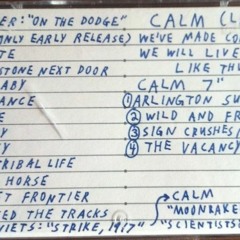 ER: "ON THE DODGE"
ONLY EARLY RELEASE)
TE
STONE NEXT DOOR
ABY
ANCE
Y
Y
TRIBAL LIFE
HORSE
ET FRONTIER
ED THE TRACKS
VIETS: "STRIKE, 1917"
CALM (L
WE'VE MADE CO
WE WILL LIVE
LIKE THU
CALM 7"
① ARLINGTON SU
② WILD AND FR
③ SIGN CRUSHES
④ THE VACANCY
CALM
"MOONRAKE
"SCIENTISTS